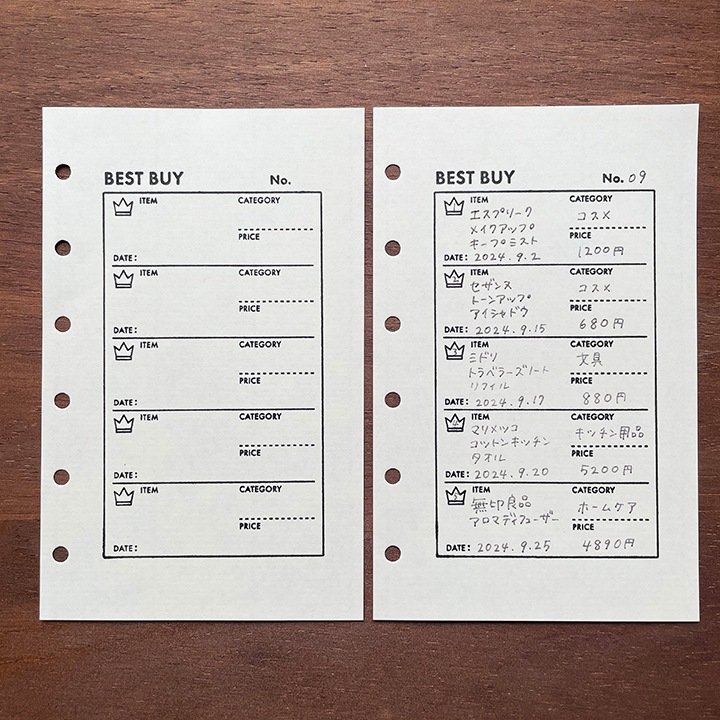 BEST BUY No.
ITEM CATEGORY
PRICE
DATE:
ITEM CATEGORY
PRICE
DATE:
ITEM CATEGORY
PRICE
DATE:
ITEM CATEGORY
PRICE
DATE:
ITEM CATEGORY
PRICE
DATE:
BEST BUY No. 09
1 ITEM CATEGORY
エスプリーク コスメ
メイクアップ PRICE
キープミスト 1200円
DATE: 2024.9.2
2 ITEM CATEGORY
セザンヌ コスメ
トーンアップ PRICE
アイシャドウ 680円
DATE: 2024.9.15
3 ITEM CATEGORY
ミドリ 文具
トラベラーズノート PRICE
リフィル 880円
DATE: 2024.9.17
4 ITEM CATEGORY
マリメッコ キッチン用品
コットンキッチン PRICE
タオル 5200円
DATE: 2024.9.20
ITEM CATEGORY
無印良品 ホームケア
アロマディフューザー PRICE
DATE: 2024.9.25 4890円